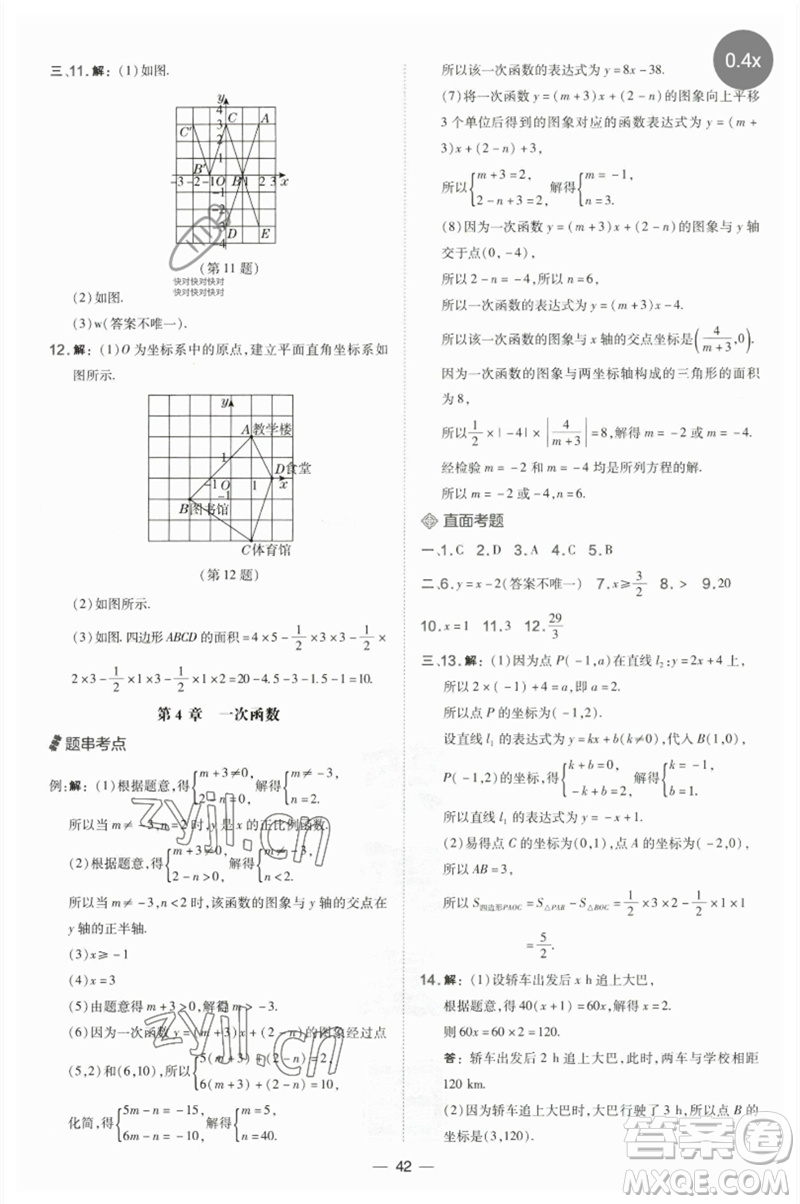 三、11. 解：(1)如图.
y
4
C′ 3 C A
2
1
B′ O B
-3 -2 -1 1 2 3 x
-1
-2
-3 D E
-4
(第 11 题)
快对快对快对
快对快对快对
(2)如图.
(3)w(答案不唯一).
12. 解：(1)O 为坐标系中的原点，建立平面直角坐标系如
图所示.
y
A 教学楼
1
-1 O 1 D 食堂
x
-1
B 图书馆
C 体育馆
(第 12 题)
(2)如图所示.
(3)如图. 四边形 ABCD 的面积 = 4×5 - 1/2 ×3×3 - 1/2 ×
2×3 - 1/2 ×1×2 - 1/2 ×3×1 = 20 - 4.5 - 3 - 1 - 1.5 = 10.
第 4 章 一次函数
题串考点
例：解：(1)根据题意，得{m+3≠0, n=2. 解得{m≠-3, n=2.
所以当 m≠-3, n=2 时, y 是 x 的正比例函数.
(2)根据题意，得{m+3≠0, 2-n>0, 解得{m≠-3, n<2.
所以当 m≠-3, n<2 时，该函数的图象与 y 轴的交点在
y 轴的正半轴.
(3)x≥-1
(4)x=3
(5)由题意得 m+3>0，解得 m>-3.
(6)因为一次函数 y=(m+3)x+(2-n)的图象经过点
(5,2)和(6,10)，所以{5(m+3)+(2-n)=2, 6(m+3)+(2-n)=10.
化简，得{5m-n=-15, 6m-n=-10, 解得{m=5, n=40.
0.4x
所以该一次函数的表达式为 y=8x-38.
(7)将一次函数 y=(m+3)x+(2-n)的图象向上平移
3 个单位后得到的图象对应的函数表达式为 y=(m+
3)x+(2-n)+3.
所以{m+3=2, 2-n+3=2, 解得{m=-1, n=3.
(8)因为一次函数 y=(m+3)x+(2-n)的图象与 y 轴
交于点(0,-4)，
所以 2-n=-4，所以 n=6，
所以一次函数的表达式为 y=(m+3)x-4.
所以该一次函数的图象与 x 轴的交点坐标是(4/(m+3),0).
因为一次函数的图象与两坐标轴构成的三角形的面积
为 8，
所以 1/2 ×|-4|×|4/(m+3)|=8，解得 m=-2 或 m=-4.
经检验 m=-2 或 m=-4 均是所列方程的解.
所以 m=-2 或 m=-4, n=6.
直面考题
一、1. C 2. D 3. A 4. C 5. B
二、6. y=x-2(答案不唯一) 7. x≥3/2 8. > 9. 20
10. x=1 11. 3 12. 29/3
三、13. 解：(1)因为点 P(-1,a)在直线 l₂:y=2x+4 上，
所以 2×(-1)+4=a，所以 a=2.
所以点 P 的坐标为(-1,2).
设直线 l₁ 的表达式为 y=kx+b(k≠0)，代入 B(1,0)，
P(-1,2)的坐标，得{k+b=0, -k+b=2, 解得{k=-1, b=1,
所以直线 l₁ 的表达式为 y=-x+1.
(2)易得点 C 的坐标为(0,1)，点 A 的坐标为(-2,0)，
所以 AB=3，
所以 S四边形PAOC = S△PAB - S△BOC = 1/2 ×3×2 - 1/2 ×1×1
= 5/2.
14. 解：(1)设轿车出发后 x h 追上大巴，
根据题意，得 40(x+1)=60x，解得 x=2.
则 60x=60×2=120.
答：轿车出发后 2 h 追上大巴，此时，两车与学校相距
120 km.
(2)因为轿车追上大巴时，大巴行驶了 3 h，所以点 B 的
坐标是(3,120).
42
zyjl.cn
zyjl.cn
答案圈
MXQE.COM